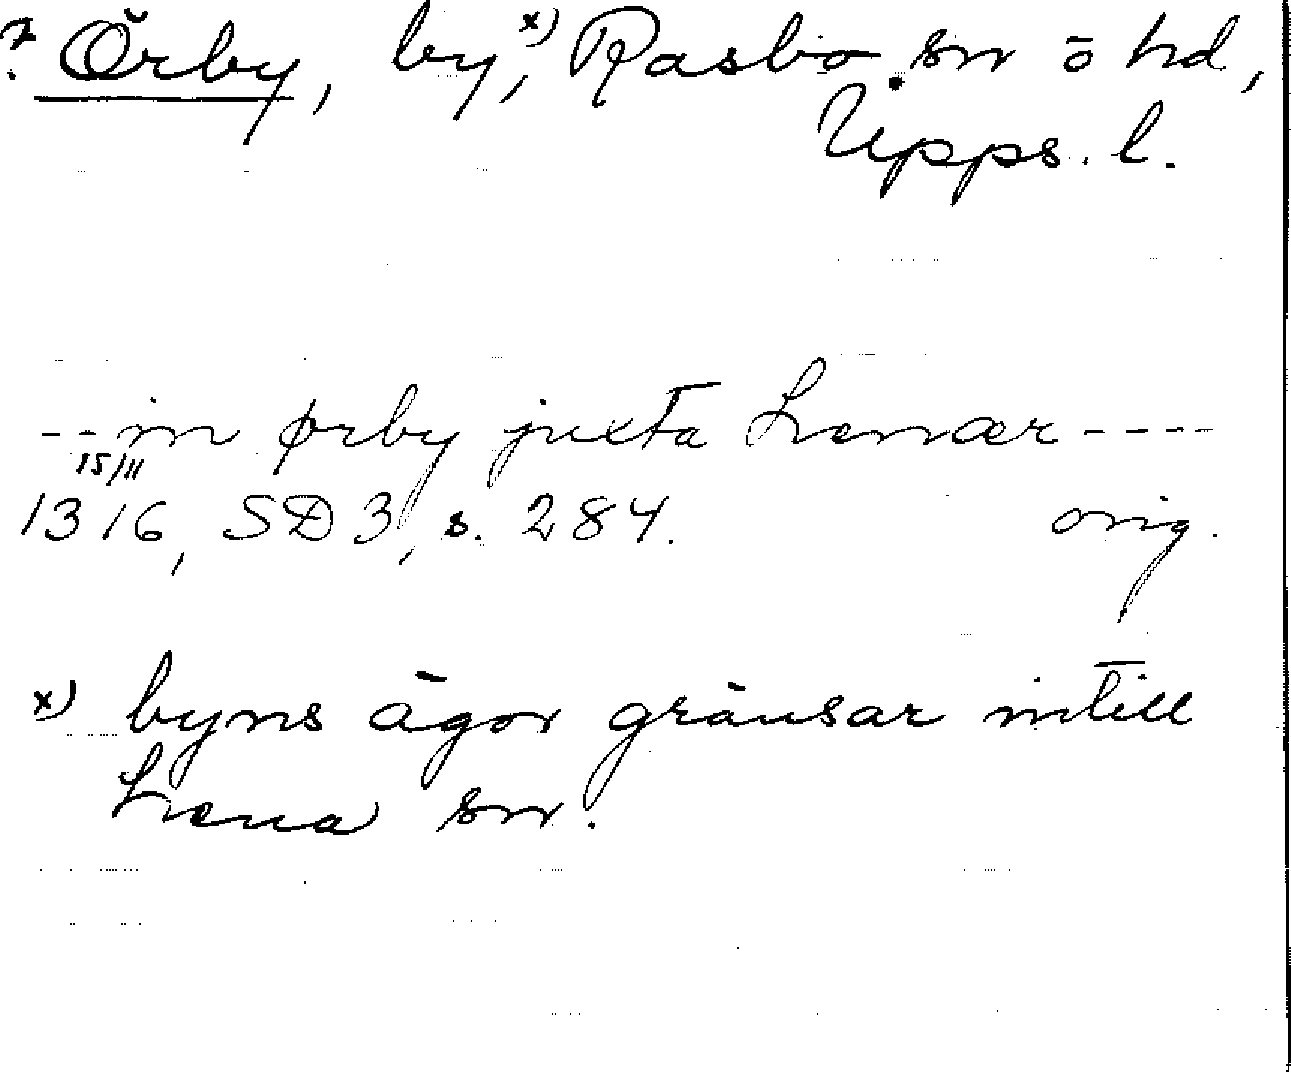 ? Örby, by, x) Rasbo sn o hd,
Upps. l.
--in ørby juxta Lenær----
15/11
1316, SD 3, s. 284. orig.
x) byns ägor gränsar intill
Lena sn.